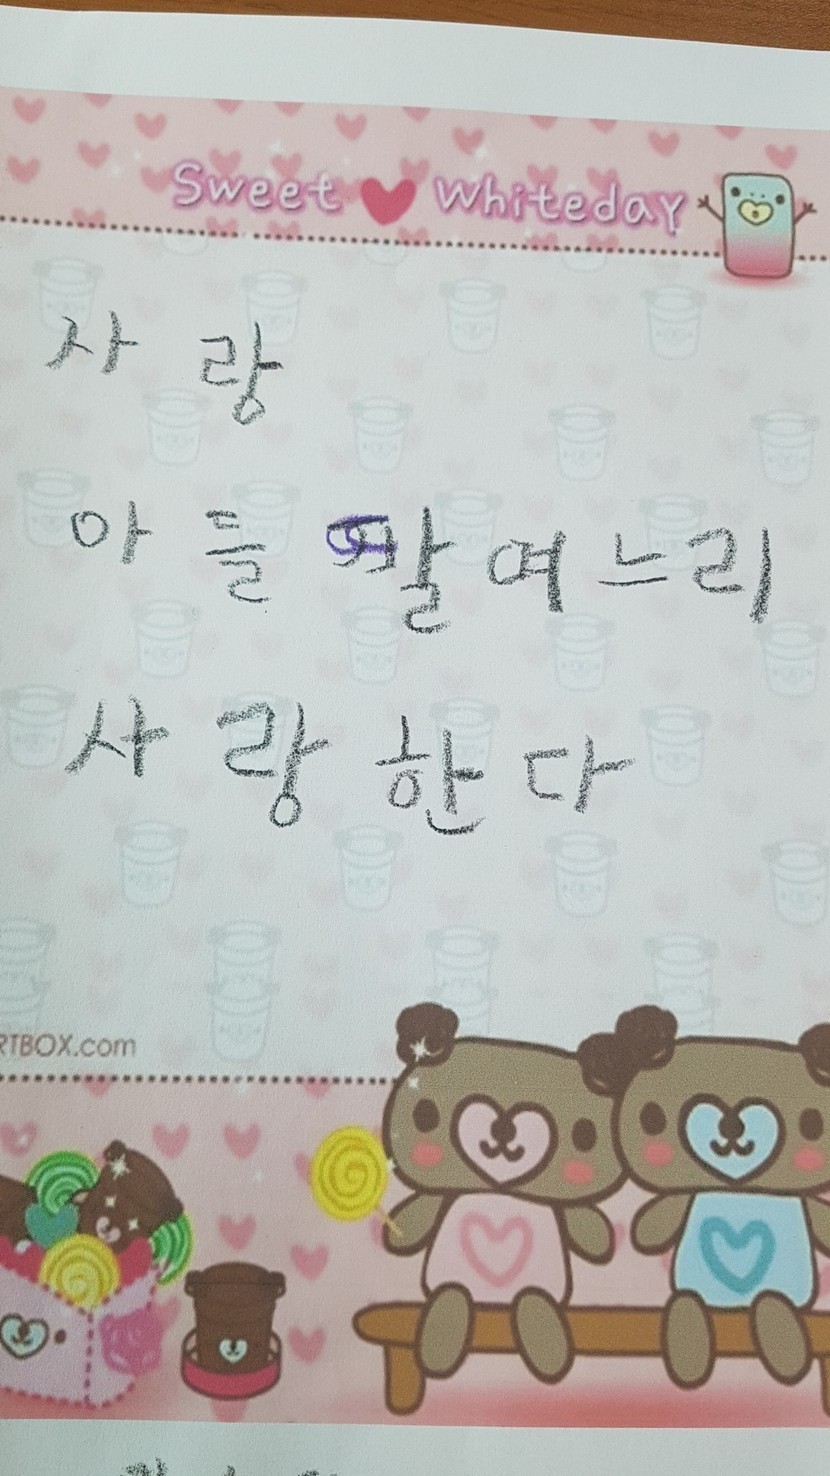 Sweet Whiteday
사랑
아들 딸 여느리
사랑한다
RTBOX.com